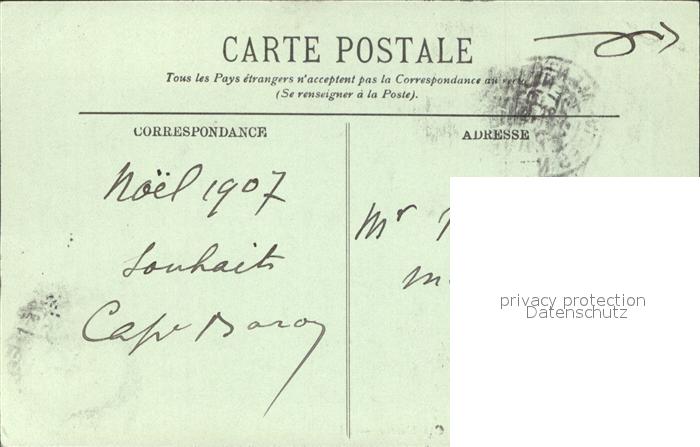 CARTE POSTALE
Tous les Pays étrangers n'acceptent pas la Correspondance au verso
(Se renseigner à la Poste).
CORRESPONDANCE
ADRESSE
Noël 1907
Souhaits
Mr
privacy protection
Datenschutz